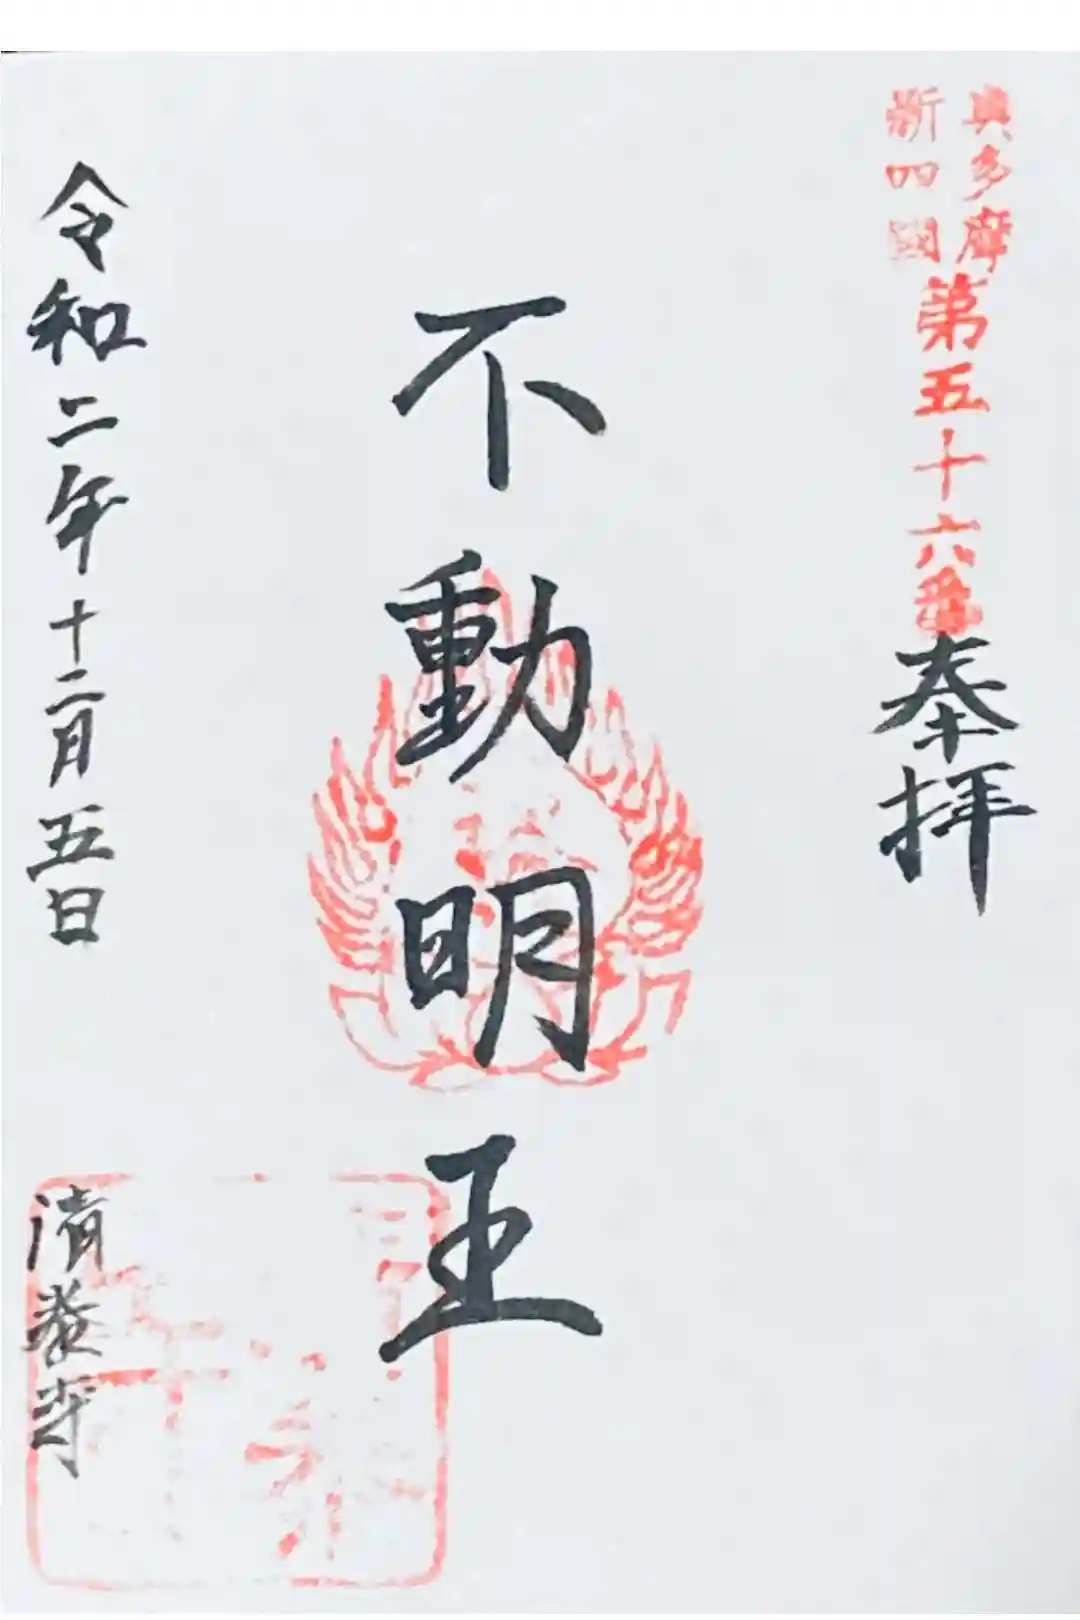 奥多摩
新四國
第五十六番
奉拝
不動明王
令和二年十二月五日
清泰寺